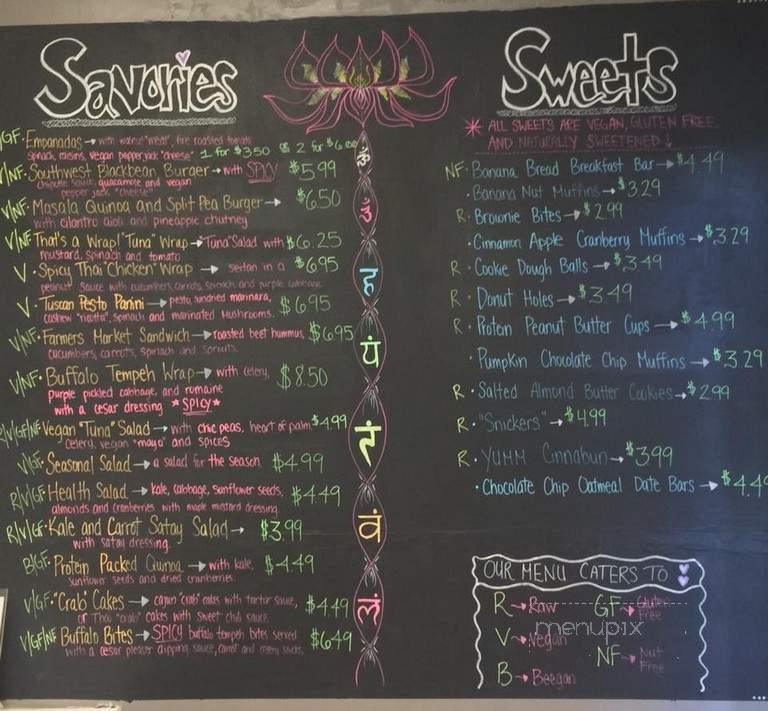 Savories
GF· Empanadas → with walnut "meat", fire roasted tomato
spinach, raisins, vegan pepperjack "cheese" 1 for $3.50 or 2 for $6.00
V/NF· Southwest Blackbean Burger → with SPICY $5.99
chipotle sauce, guacamole and vegan
pepper jack "cheese"
V/NF· Masala Quinoa and Split Pea Burger → $6.50
with cilantro aioli and pineapple chutney
V/NF· That's a Wrap! "Tuna" Wrap → "Tuna" Salad with $6.25
mustard, spinach and tomato
V· Spicy Thai "Chicken" Wrap → seitan in a $6.95
peanut sauce with cucumbers, carrots, spinach and purple cabbage
V· Tuscan Pesto Panini → pesto, sundried marinara, $6.95
cashew "ricotta", spinach and marinated mushrooms.
V/NF· Farmers Market Sandwich → roasted beet hummus, $6.95
cucumbers, carrots, spinach and sprouts.
V/NF· Buffalo Tempeh Wrap → with celery, $8.50
purple pickled cabbage, and romaine
with a cesar dressing *SPICY*
R/V/GF/NF· Vegan "Tuna" Salad → with chic peas, heart of palm, $4.99
celery, vegan "mayo" and spices
V/GF· Seasonal Salad → a salad for the season. $4.99
R/V/GF· Health Salad → kale, cabbage, sunflower seeds, $4.49
almonds and cranberries with maple mustard dressing.
R/V/GF· Kale and Carrot Satay Salad → $3.99
with satay dressing.
B/GF· Protein Packed Quinoa → with kale, $4.49
sunflower seeds and dried cranberries.
V/GF· "Crab" Cakes → cajun "crab" cakes with tartar sauce, $4.49
or Thai "crab" cakes with sweet chili sauce
V/GF/NF· Buffalo Bites → SPICY buffalo tempeh bites served $6.49
with a cesar pleaser dipping sauce, carrot and celery sticks.
ॐ
ह
यं
रं
वं
लं
Sweets
* ALL SWEETS ARE VEGAN, GLUTEN FREE
AND NATURALLY SWEETENED ↓
NF· Banana Bread Breakfast Bar → $4.49
· Banana Nut Muffins → $3.29
R· Brownie Bites → $2.99
· Cinnamon Apple Cranberry Muffins → $3.29
R· Cookie Dough Balls → $3.49
R· Donut Holes → $3.49
R· Protein Peanut Butter Cups → $4.99
· Pumpkin Chocolate Chip Muffins → $3.29
R· Salted Almond Butter Cookies → $2.99
R· "Snickers" → $4.99
R· YUMM Cinnabun → $3.99
· Chocolate Chip Oatmeal Date Bars → $4.49
OUR MENU CATERS TO
R → Raw GF → Gluten Free
V → Vegan NF → Nut Free
B → Beegan
menupix